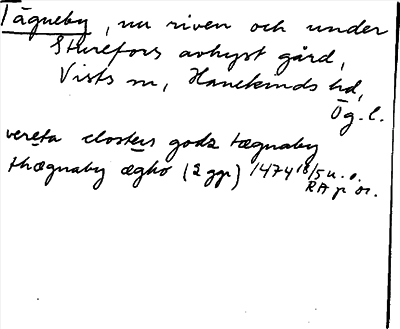 Tägneby, nu riven och under
Sturefors avhyst gård,
Vists sn, Hanekinds hd,
Ög. l.
vereta closters godz tægnaby
thægnaby ægho (2 ggr) 1474 18/5 u. o.
RA p or.